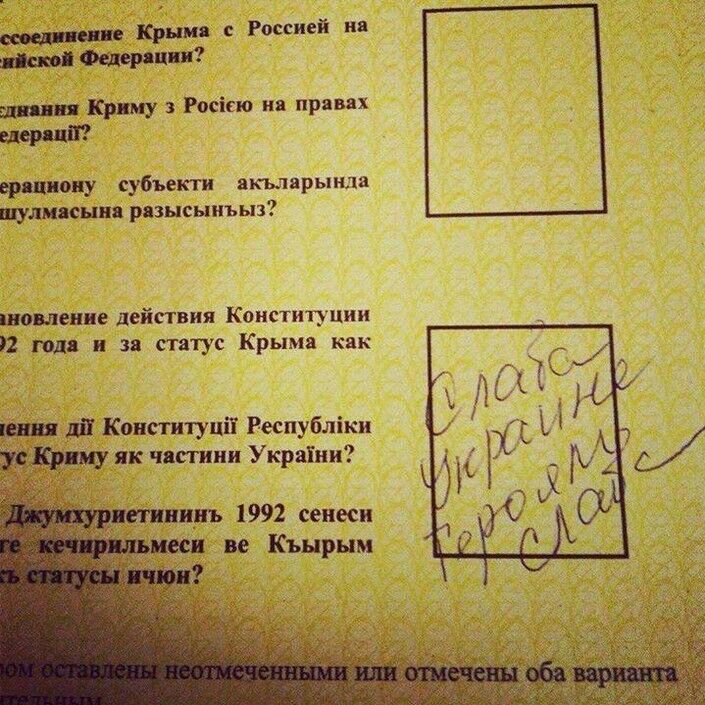 ссоединение Крыма с Россией на
сийской Федерации?
єднання Криму з Росією на правах
едерації?
ерациону субъекти акъларында
шулмасына разысынъыз?
ановление действия Конституции
92 года и за статус Крыма как
лення дії Конституції Республіки
тус Криму як частини України?
Джумхуриетининъ 1992 сенеси
ге кечирильмеси ве Къырым
къ статусы ичюн?
Слава
Украине
Героям
Слава
ром оставлены неотмеченными или отмечены оба варианта
ительным